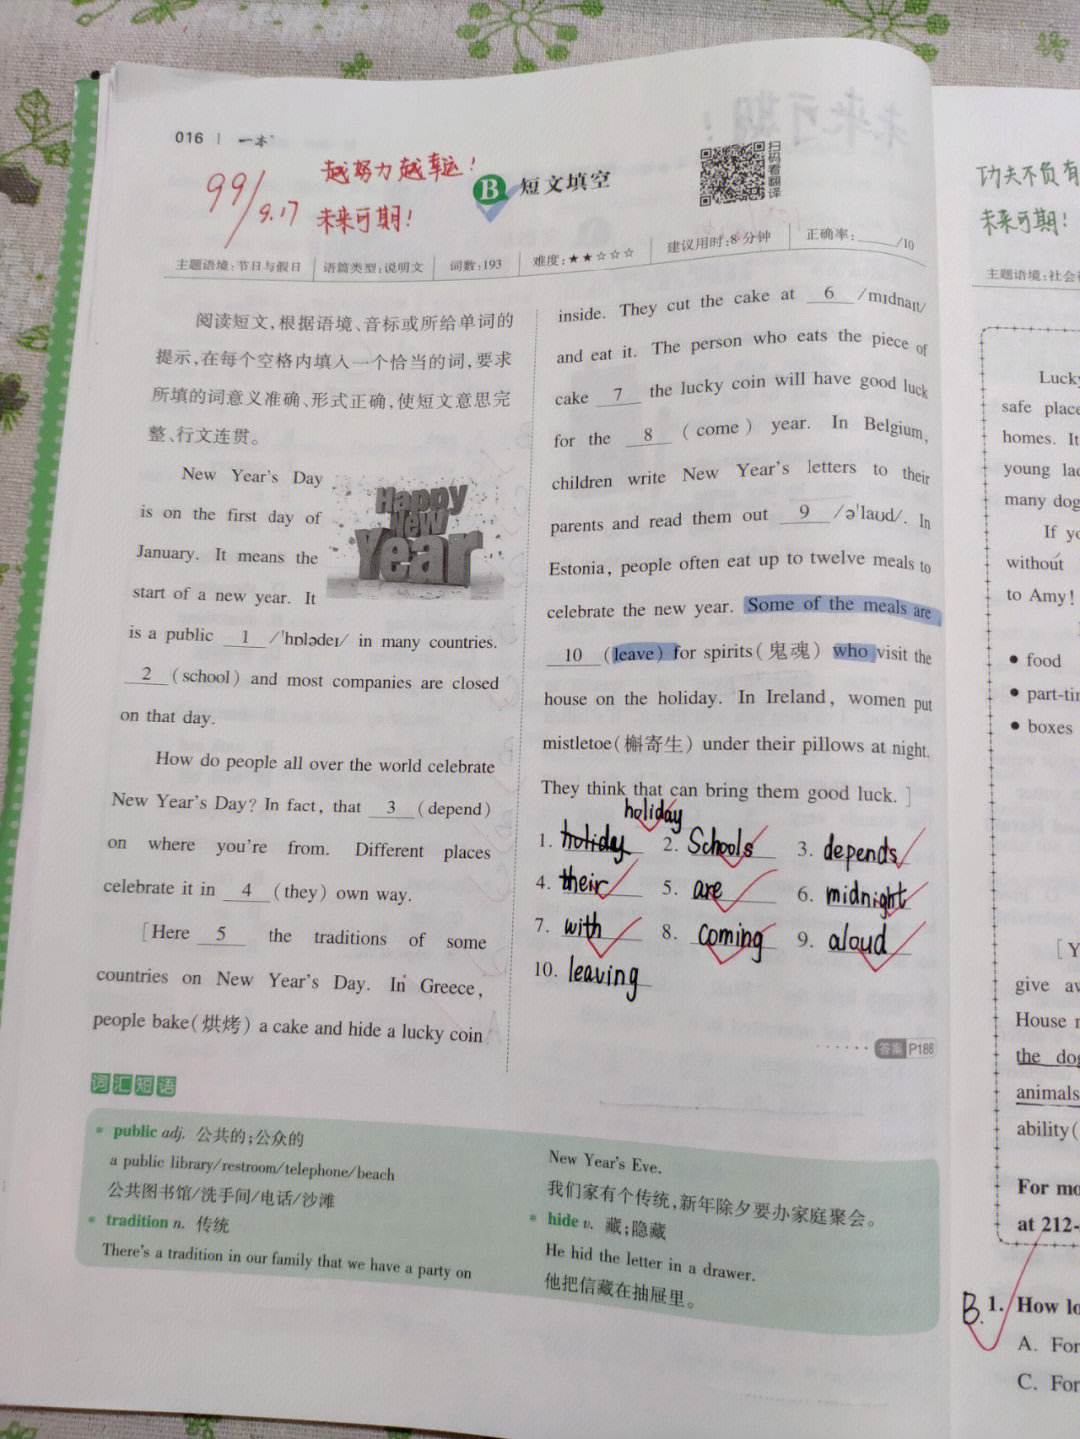 016 | 一本
99/9.17
越努力越幸运!
未来可期!
B 短文填空
扫码看翻译
主题语境:节日与假日 | 语篇类型:说明文 | 词数:193 | 难度:★★☆☆☆ | 建议用时:8分钟 | 正确率:____/10
阅读短文,根据语境、音标或所给单词的
提示,在每个空格内填入一个恰当的词,要求
所填的词意义准确、形式正确,使短文意思完
整、行文连贯。
New Year's Day
is on the first day of
January. It means the
start of a new year. It
Happy
New
Year
is a public 1 /ˈhɒlədeɪ/ in many countries.
2 (school) and most companies are closed
on that day.
How do people all over the world celebrate
New Year's Day? In fact, that 3 (depend)
on where you're from. Different places
celebrate it in 4 (they) own way.
[Here 5 the traditions of some
countries on New Year's Day. In Greece,
people bake(烘烤) a cake and hide a lucky coin
inside. They cut the cake at 6 /mɪdnaɪt/
and eat it. The person who eats the piece of
cake 7 the lucky coin will have good luck
for the 8 (come) year. In Belgium,
children write New Year's letters to their
parents and read them out 9 /əˈlaʊd/. In
Estonia, people often eat up to twelve meals to
celebrate the new year. Some of the meals are
10 (leave) for spirits(鬼魂) who visit the
house on the holiday. In Ireland, women put
mistletoe(槲寄生) under their pillows at night.
They think that can bring them good luck. ]
holiday
1. holidy 2. Schools 3. depends
4. their 5. are 6. midnight
7. with 8. coming 9. aloud
10. leaving
······答案 P188
词汇短语
public adj. 公共的;公众的
a public library/restroom/telephone/beach
公共图书馆/洗手间/电话/沙滩
tradition n. 传统
There's a tradition in our family that we have a party on
New Year's Eve.
我们家有个传统,新年除夕要办家庭聚会。
hide v. 藏;隐藏
He hid the letter in a drawer.
他把信藏在抽屉里。
功夫不负有
未来可期!
主题语境:社会
Lucky
safe place
homes. It
young la
many dog
If yo
without
to Amy!
food
part-tir
boxes
[Y
give av
House
the dog
animals
ability(
For mo
at 212-
B. 1. How lo
A. For
C. For